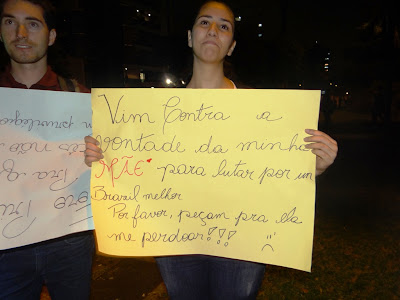 Vim Contra a
vontade da minha
MÃE para lutar por um
Brasil melhor
Por favor, peçam pra ela
me perdoar!!!